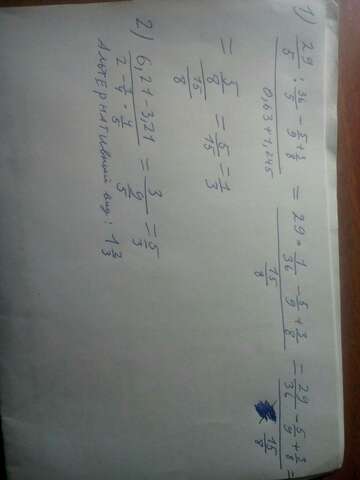 1) (29/5 : 36/5 − 5/9 + 3/8)/(0,63+1,245) = (29 · 1/36 − 5/9 + 3/8)/(15/8) = (29/36 − 5/9 + 3/8)/(15/8) =
= (5/8)/(15/8) = 5/15 = 1/3
2) (6,21−3,21)/(2 − 1/4 · 4/5) = 3/(9/5) = 5/3
Альтернативный вид: 1 2/3